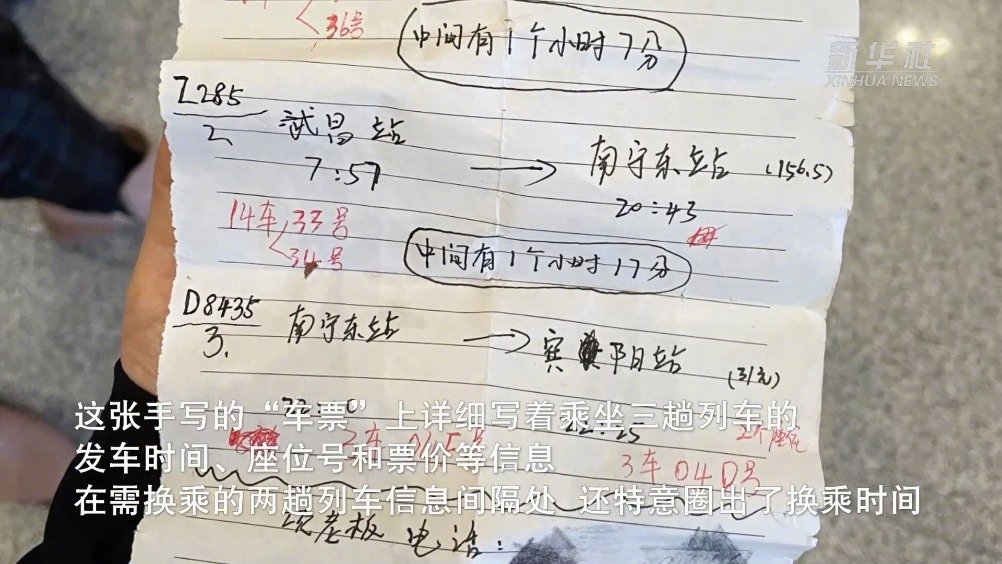 36号
中间有1个小时7分
新华社
XINHUA NEWS
Z285
2、武昌站 → 南宁东站 (156.5)
7:57 20:43
14车 33号
34号
中间有1个小时17分
D8435
3. 南宁东站 → 宾阳站 (31元)
这张手写的“车票”上详细写着乘坐三趟列车的
2个座位
发车时间、座位号和票价等信息
3车04D号
在需换乘的两趟列车信息间隔处 还特意圈出了换乘时间
老板电话: